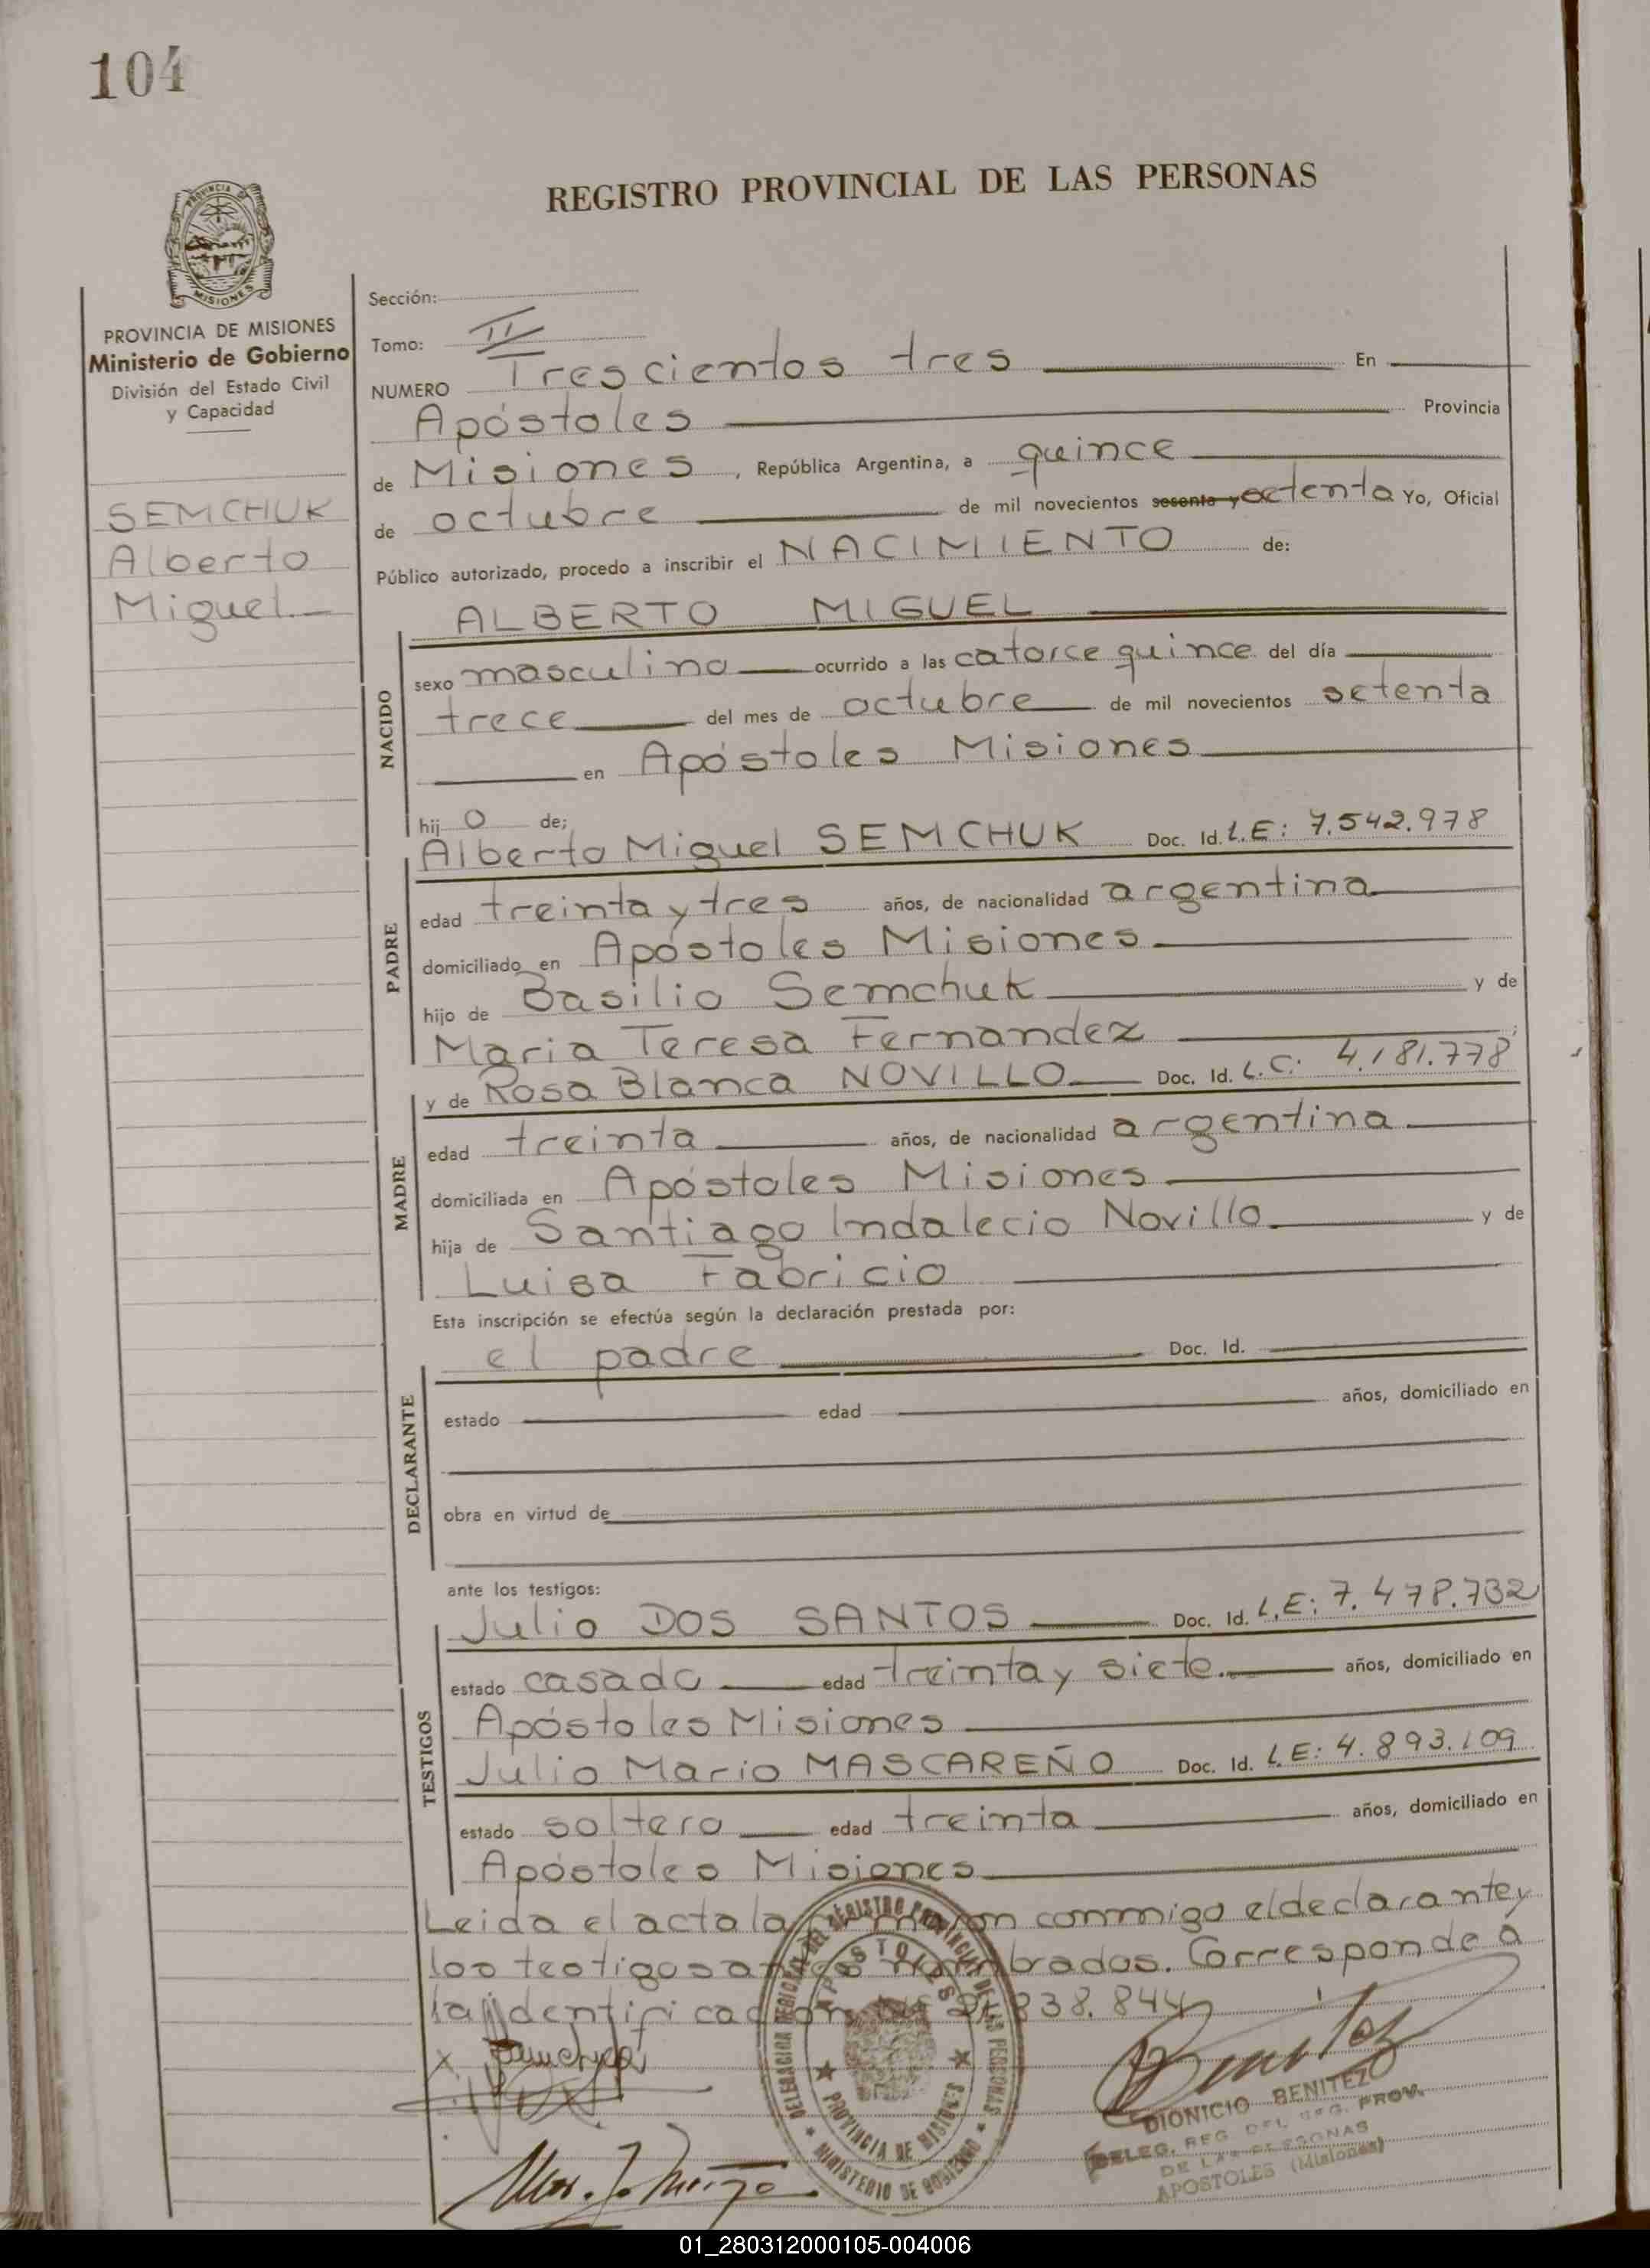 104
REGISTRO PROVINCIAL DE LAS PERSONAS
PROVINCIA DE MISIONES
Ministerio de Gobierno
División del Estado Civil
y Capacidad
SEMCHUK
Alberto
Miguel
Sección:
Tomo: II
NUMERO Trescientos tres En
Apóstoles Provincia
de Misiones, República Argentina, a quince
de octubre de mil novecientos sesenta y setenta Yo, Oficial
Público autorizado, procedo a inscribir el NACIMIENTO de:
ALBERTO MIGUEL
NACIDO
sexo masculino ocurrido a las catorce quince del día
trece del mes de octubre de mil novecientos setenta
en Apóstoles Misiones
hijo de;
PADRE
Alberto Miguel SEMCHUK Doc. Id. L.E: 7.542.978
edad treinta y tres años, de nacionalidad argentina
domiciliado en Apóstoles Misiones
hijo de Basilio Semchuk y de
Maria Teresa Fernandez
MADRE
y de Rosa Blanca NOVILLO Doc. Id. L.C: 4.181.778
edad treinta años, de nacionalidad argentina
domiciliada en Apóstoles Misiones
hija de Santiago Indalecio Novillo y de
Luisa Fabricio
Esta inscripción se efectúa según la declaración prestada por:
DECLARANTE
el padre Doc. Id.
estado edad años, domiciliado en
obra en virtud de
ante los testigos:
TESTIGOS
Julio DOS SANTOS Doc. Id. L.E: 7.478.732
estado casado edad treinta y siete. años, domiciliado en
Apóstoles Misiones
Julio Mario MASCAREÑO Doc. Id. L.E: 4.893.109
estado soltero edad treinta años, domiciliado en
Apóstoles Misiones
Leida el acta la conmigo el declarante y
los testigos antes nombrados. Corresponde a
la identificación 838.844
DELEGACION REGIONAL DEL REGISTRO PROVINCIAL DE LAS PERSONAS
APOSTOLES
PROVINCIA DE MISIONES
MINISTERIO DE GOBIERNO
DIONICIO BENITEZ
DELEG. REG. DEL REG. PROV.
DE LAS PERSONAS
APOSTOLES (Misiones)
01_280312000105-004006